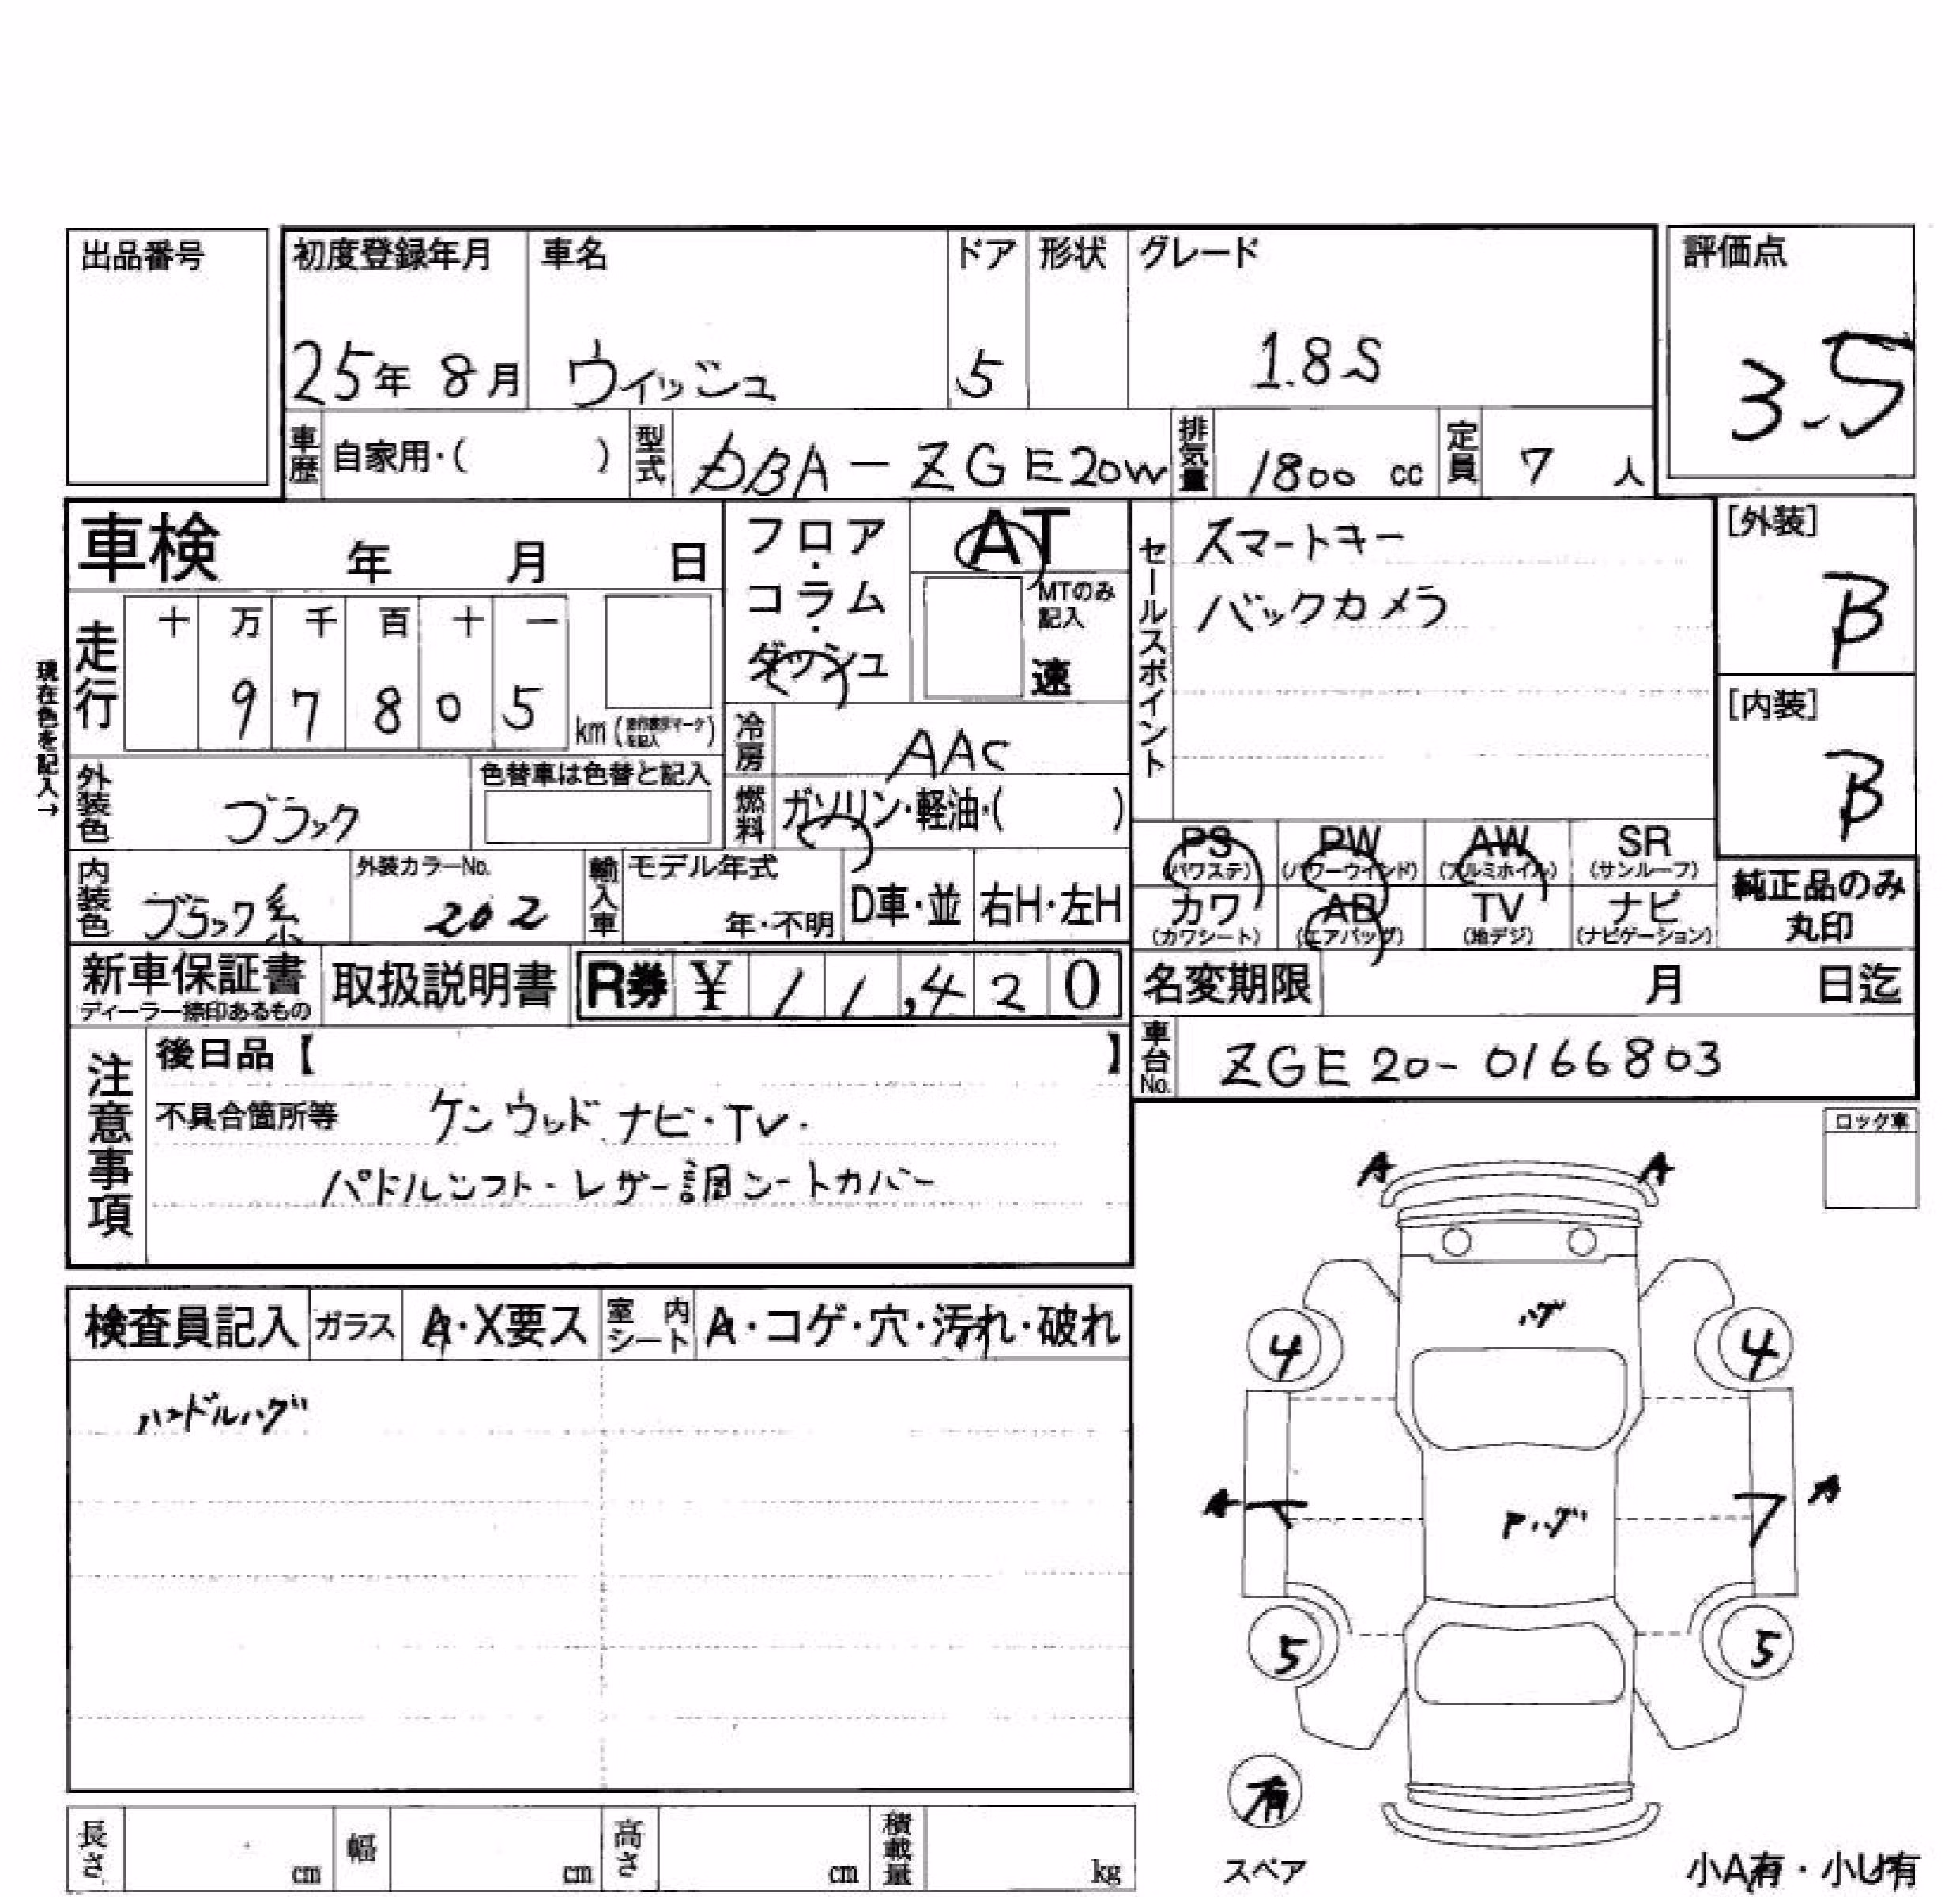 出品番号
初度登録年月 車名 ドア 形状 グレード
25年 8月 ウィッシュ 5 1.8S
評価点
3.5
車歴 自家用・( ) 型式 DBA-ZGE20W 排気量 1800 cc 定員 7 人
車検 年 月 日
フロア・コラム・ダッシュ
AT
MTのみ記入
速
セールスポイント
スマートキー
バックカメラ
[外装]
B
[内装]
B
現在色を記入→
走行 十 万 千 百 十 一
9 7 8 0 5 km
冷房 AAC
外装色 ブラック
色替車は色替と記入
燃料 ガソリン・軽油・( )
PS (パワステ) PW (パワーウインド) AW (アルミホイル) SR (サンルーフ)
カワ (カワシート) AB (エアバッグ) TV (地デジ) ナビ (ナビゲーション)
純正品のみ
丸印
内装色 ブラック系 外装カラーNo. 202 輸入車 モデル年式 年・不明 D車・並 右H・左H
新車保証書 取扱説明書 R券 ¥ 11,420
ディーラー捺印あるもの
名変期限 月 日迄
車台No. ZGE20-0166803
注意事項
後日品【 】
不具合箇所等 ケンウッド ナビ・TV・
パドルシフト・レザー調シートカバー
ロック車
検査員記入 ガラス A・X要ス 室内シート A・コゲ・穴・汚れ・破れ
ハンドルハゲ
A A
ハゲ
4 4
A A
Pハゲ
5 5
有
スペア
小A有・小U有
長さ cm 幅 cm 高さ cm 積載量 kg